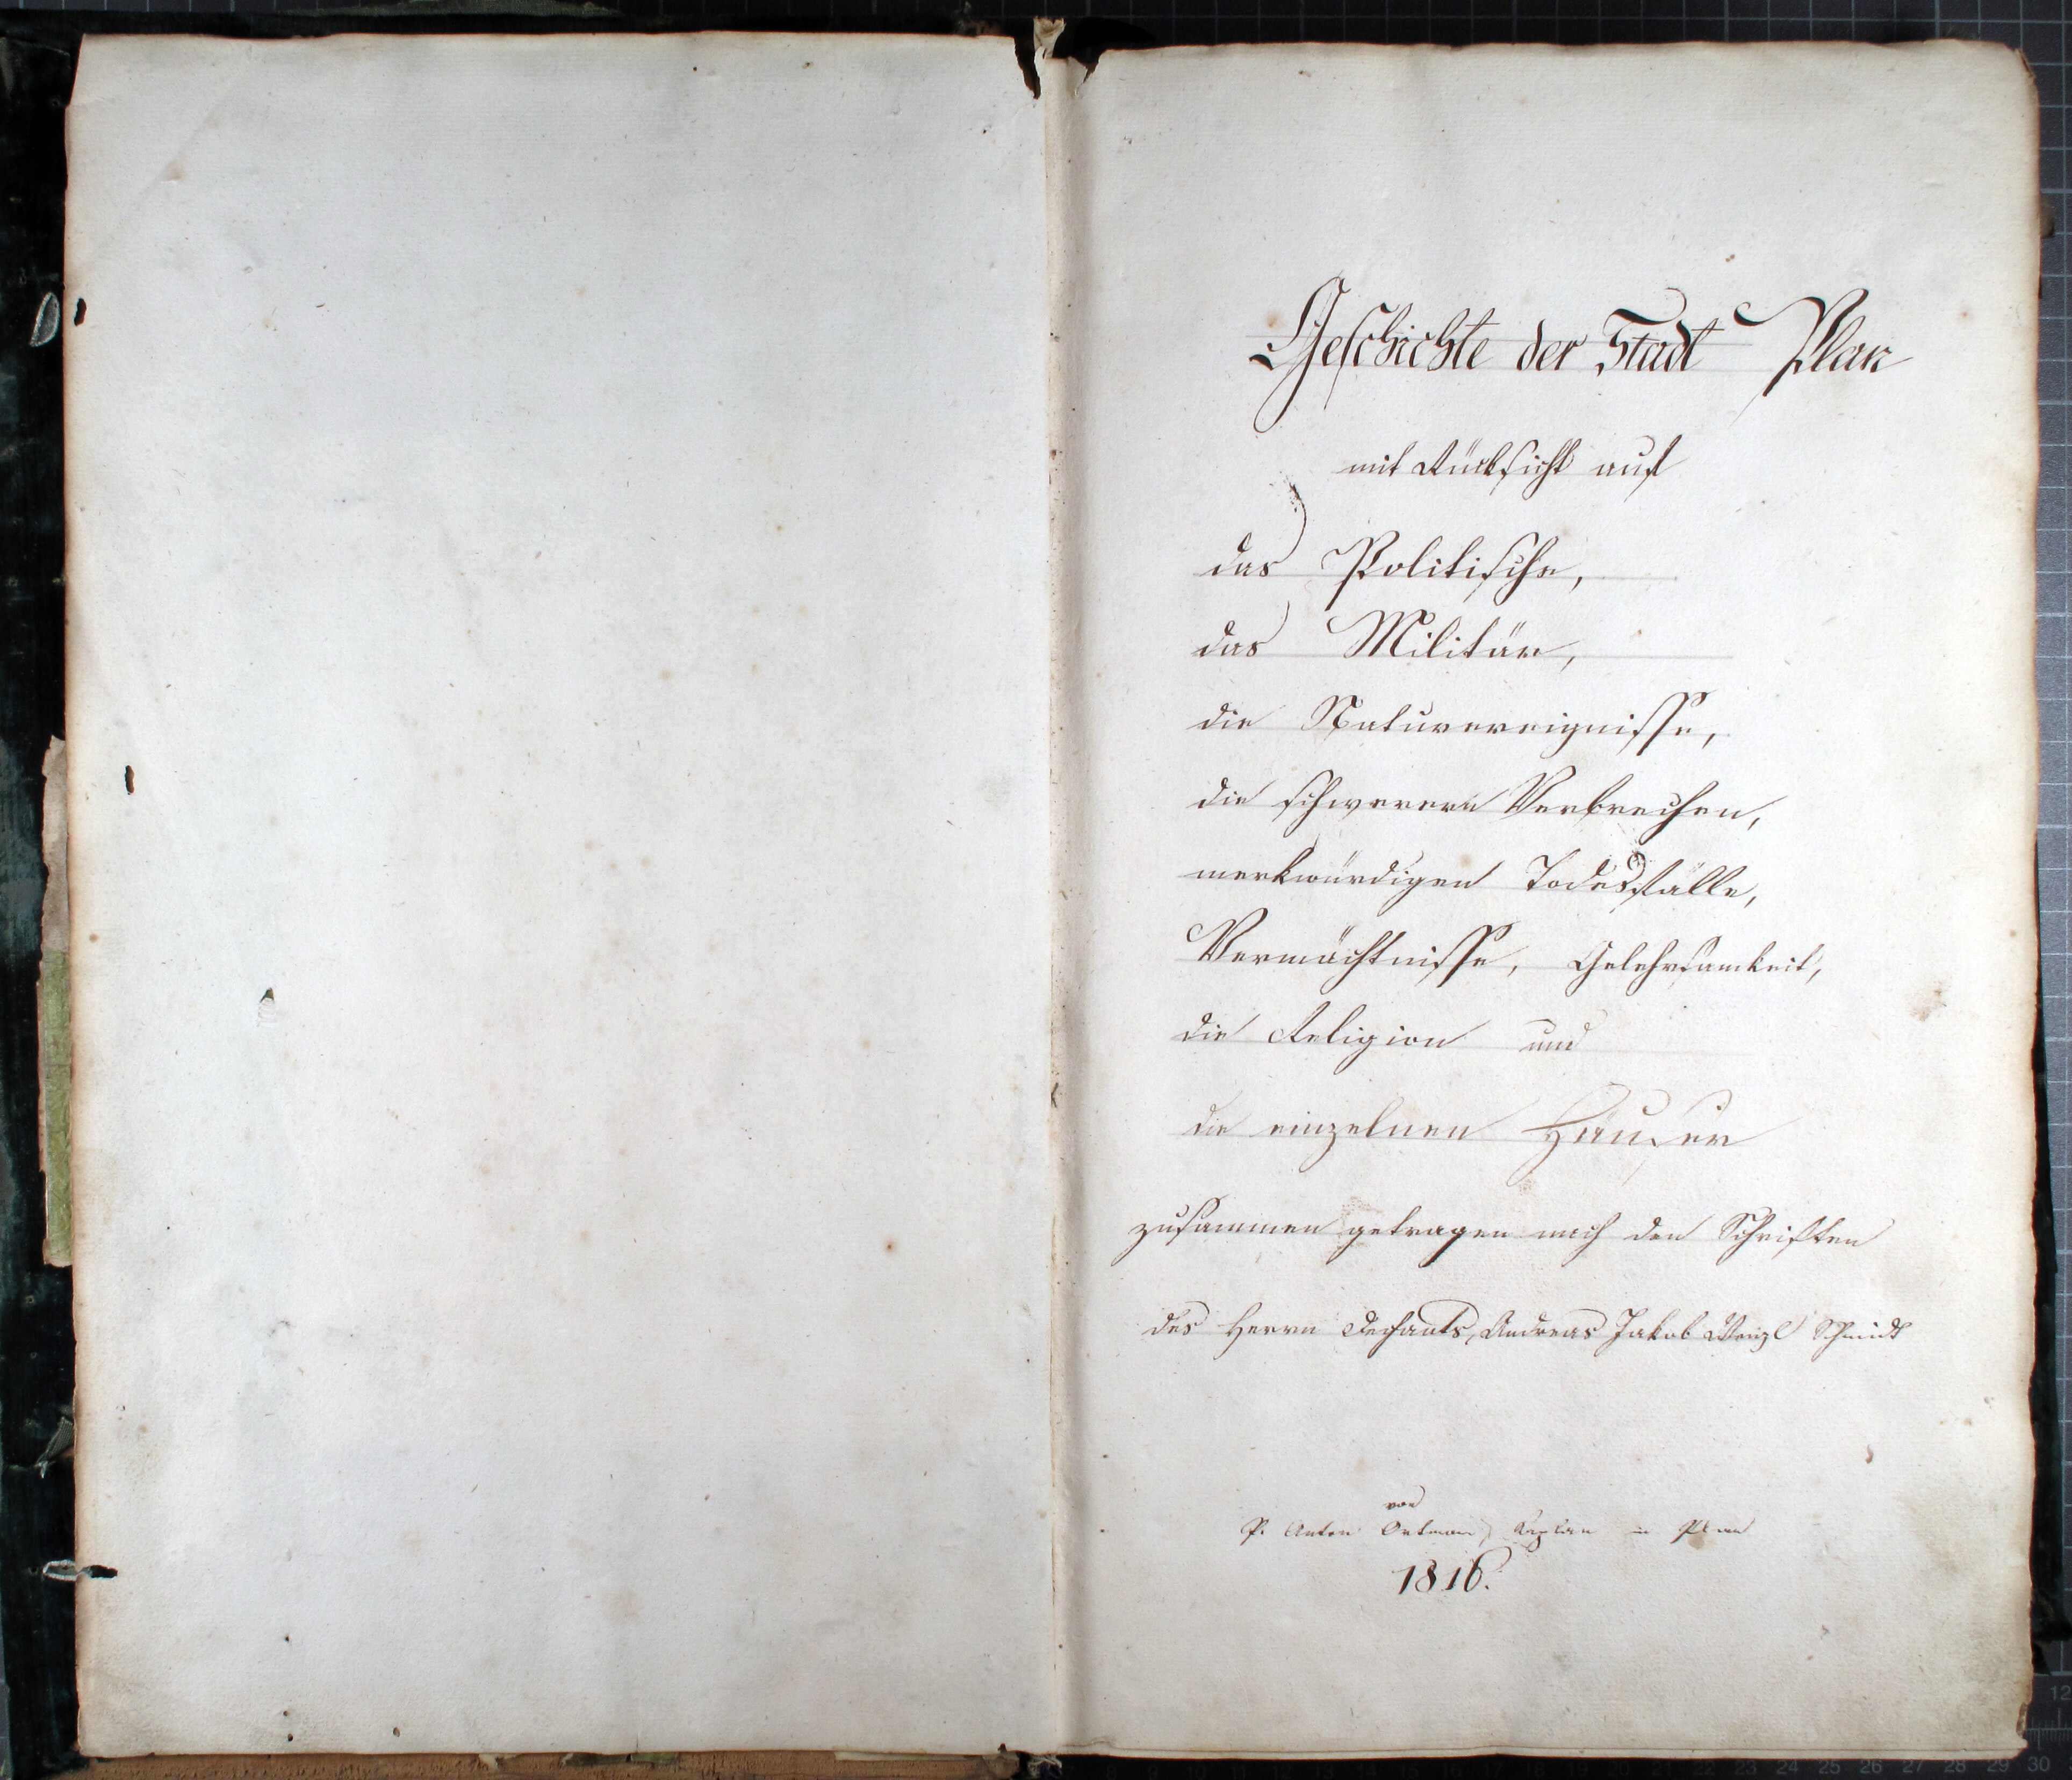 Geschichte der Stadt Plan
mit Rücksicht auf
das Politische,
das Militär,
die Naturereignisse,
die schweren Verbrechen,
merkwürdigen Todesfälle,
Vermächtnisse, Gelehrsamkeit,
die Religion und
die einzelnen Häuser
zusammen getragen nach den Schriften
des Herrn Dechants, Andreas Jakob Wenzl Schmidt
von
P. Anton Ortmann, Kaplan in Plan
1816.
12
8 9 10 11 12 13 14 15 16 17 18 19 20 21 22 23 24 25 26 27 28 29 30